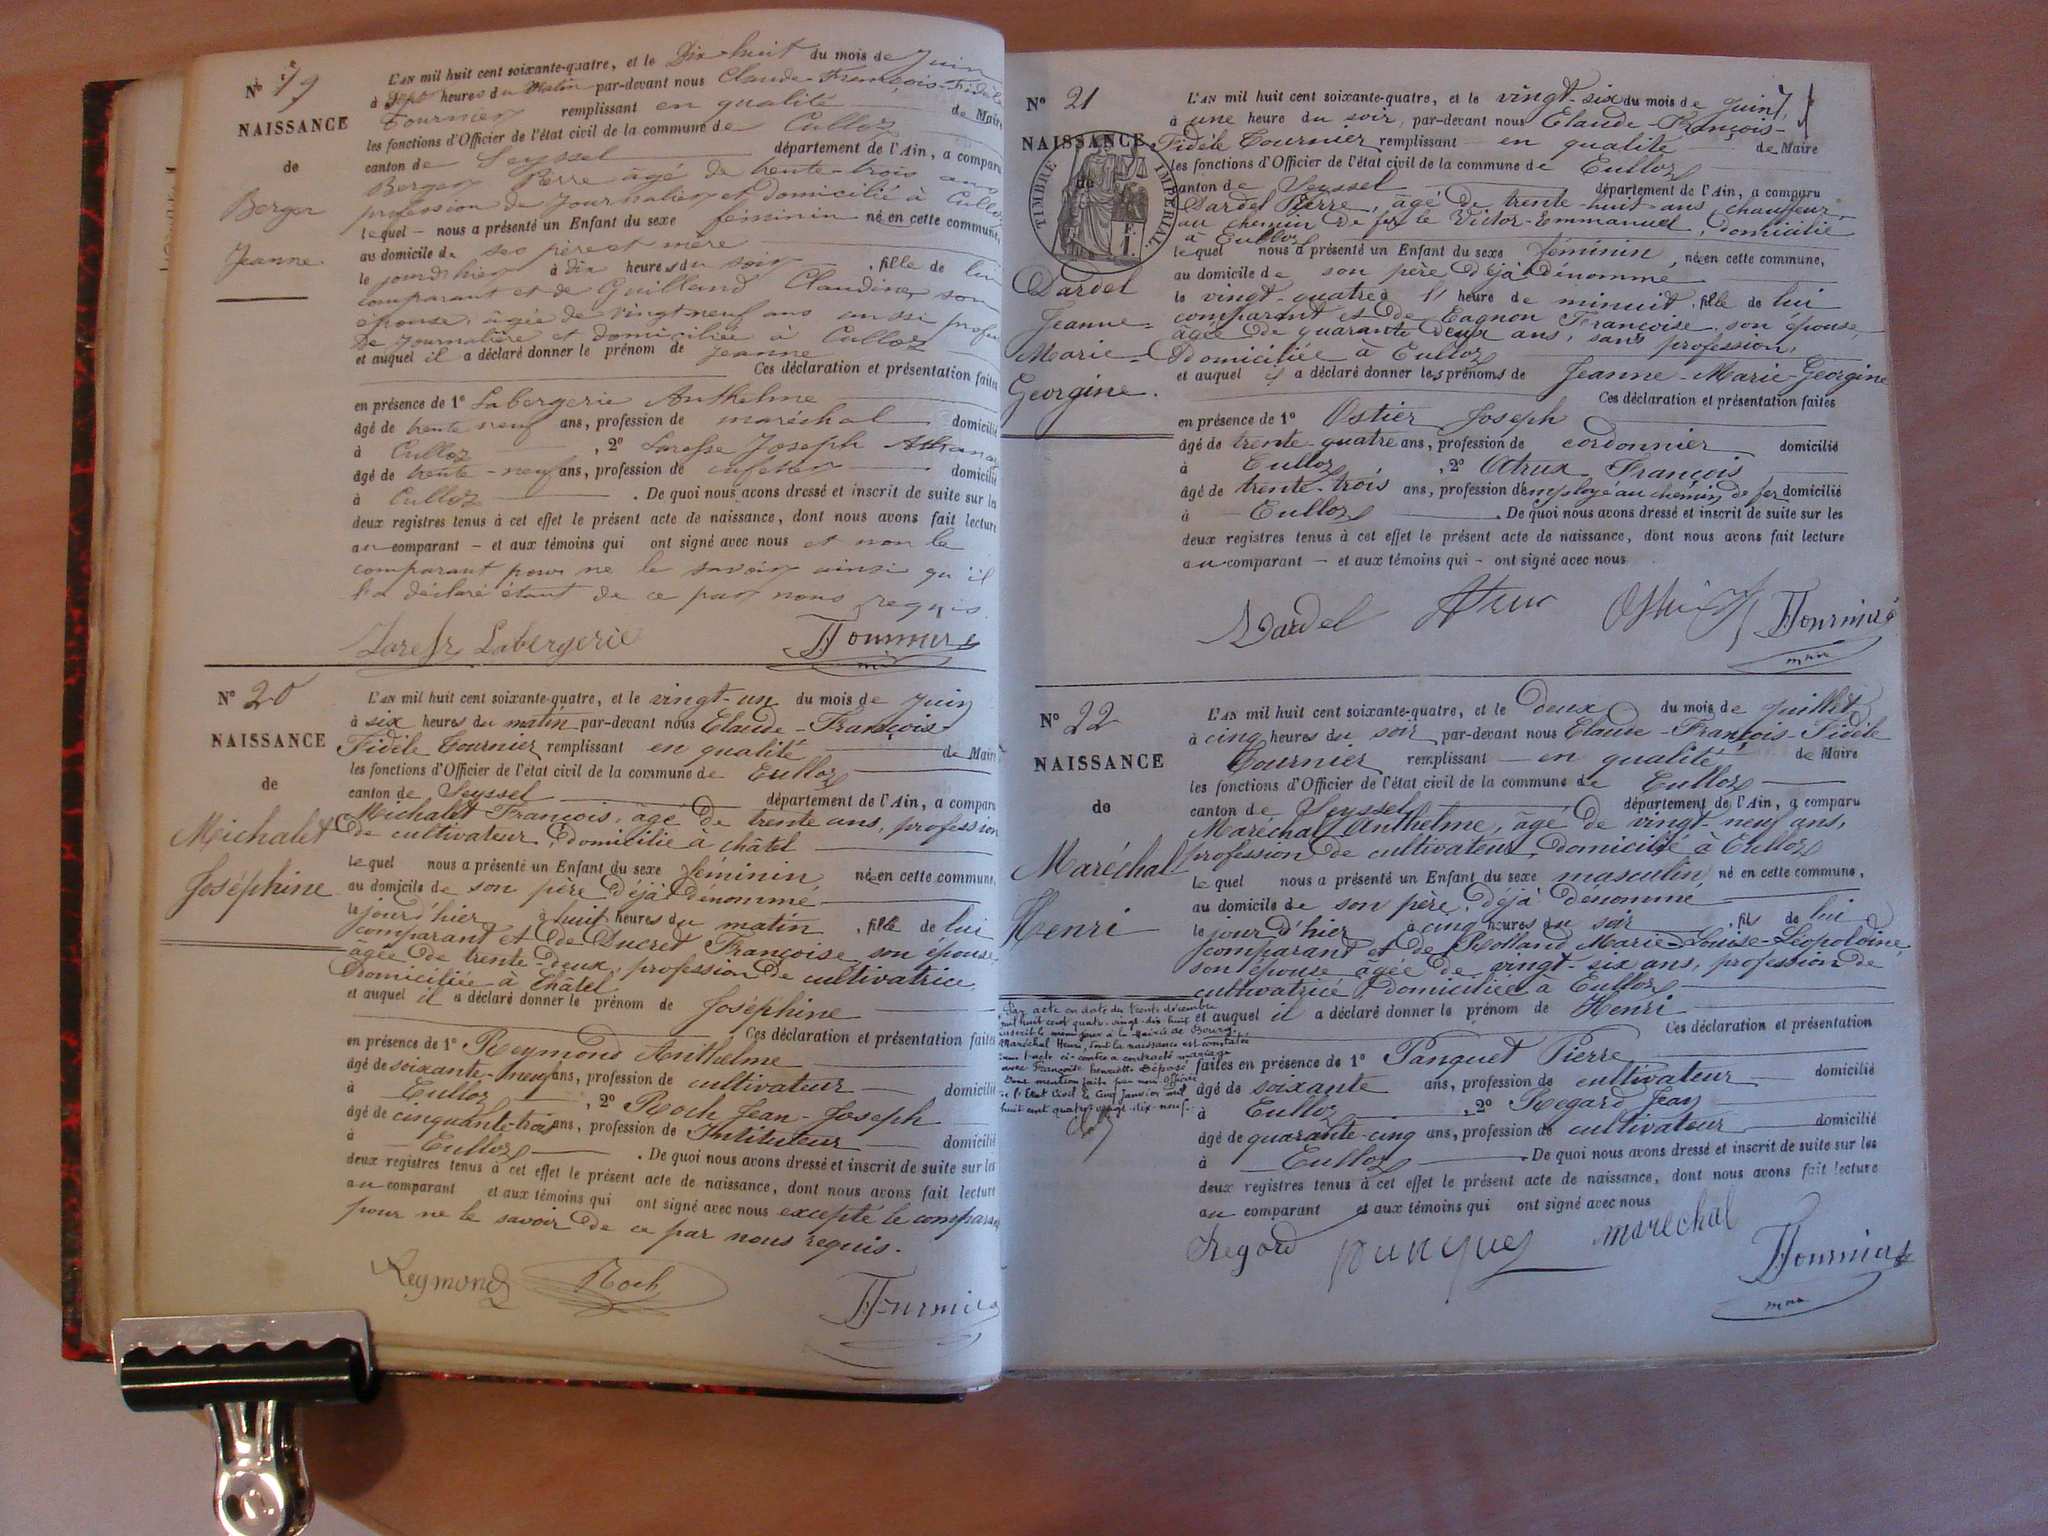 N° 19
NAISSANCE
de
Berger
Jeanne
L'AN mil huit cent soixante-quatre, et le Dix-huit du mois de Juin
à Sept heures du Matin par-devant nous Claude-François-Fidèle
Tournier remplissant en qualité de Maire
les fonctions d'Officier de l'état civil de la commune de Culloz
canton de Seyssel département de l'Ain, a comparu
Berger Pierre âgé de trente-trois ans
profession de Journalier et domicilié à Culloz
lequel nous a présenté un Enfant du sexe féminin né en cette commune,
au domicile de ses père et mère
le jourd'hier à dix heures du soir, fille de lui
comparant et de Guilland Claudine son
épouse, âgée de vingt-neuf ans aussi profession
de Journalière et domiciliée à Culloz
et auquel il a déclaré donner le prénom de Jeanne
Ces déclaration et présentation faites
en présence de 1° Labergerie Anthelme
âgé de trente neuf ans, profession de maréchal domicilié
à Culloz, 2° Joseph
âgé de trente-neuf ans, profession de cafetier domicilié
à Culloz. De quoi nous avons dressé et inscrit de suite sur les
deux registres tenus à cet effet le présent acte de naissance, dont nous avons fait lecture
au comparant - et aux témoins qui ont signé avec nous et non le
comparant pour ne le savoir ainsi qu'il
l'a déclaré étant de ce par nous requis
Labergerie
N° 20
NAISSANCE
de
Michalet
Joséphine
L'AN mil huit cent soixante-quatre, et le vingt-un du mois de Juin
à six heures du matin par-devant nous Claude-François
Fidèle Tournier remplissant en qualité de Maire
les fonctions d'Officier de l'état civil de la commune de Culloz
canton de Seyssel département de l'Ain, a comparu
Michalet François, âgé de trente ans, profession
de cultivateur, domicilié à châtel
lequel nous a présenté un Enfant du sexe féminin né en cette commune,
au domicile de son père déjà dénommé,
le jourd'hier à huit heures du matin, fille de lui
comparant et de Ducret Françoise, son épouse,
âgée de trente-deux, profession de cultivatrice,
domiciliée à Châtel
et auquel il a déclaré donner le prénom de Joséphine
Ces déclaration et présentation faites
en présence de 1° Reymond Anthelme
âgé de soixante-neuf ans, profession de cultivateur domicilié
à Culloz, 2° Roch Jean-Joseph
âgé de cinquante-trois ans, profession de Intituteur domicilié
à Culloz. De quoi nous avons dressé et inscrit de suite sur les
deux registres tenus à cet effet le présent acte de naissance, dont nous avons fait lecture
au comparant et aux témoins qui ont signé avec nous excepté le comparant
pour ne le savoir de ce par nous requis.
Reymond Roch
N° 21
NAISSANCE
de
TIMBRE IMPÉRIAL
Dardel
Jeanne-
Marie-
Georgine.
L'AN mil huit cent soixante-quatre, et le vingt-six du mois de Juin,
à une heure du soir, par-devant nous Claude-François-
Fidèle Tournier remplissant en qualité de Maire
les fonctions d'Officier de l'état civil de la commune de Culloz
canton de Seyssel département de l'Ain, a comparu
Dardel Pierre, âgé de trente-huit ans, chauffeur
au chemin de fer le Victor-Emmanuel, domicilié
à Culloz
lequel nous a présenté un Enfant du sexe féminin, né en cette commune,
au domicile de son père déjà dénommé
le vingt-quatre à l'heure de minuit, fille de lui
comparant et de Gagnon Françoise, son épouse,
âgée de quarante deux ans, sans profession,
domiciliée à Culloz
et auquel il a déclaré donner les prénoms de Jeanne-Marie-Georgine
Ces déclaration et présentation faites
en présence de 1° Ostier Joseph
âgé de trente-quatre ans, profession de cordonnier domicilié
à Culloz, 2° Atrux François
âgé de trente-trois ans, profession d'employé au chemin de fer domicilié
à Culloz. De quoi nous avons dressé et inscrit de suite sur les
deux registres tenus à cet effet le présent acte de naissance, dont nous avons fait lecture
au comparant - et aux témoins qui - ont signé avec nous
Dardel
N° 22
NAISSANCE
de
Maréchal
Henri
L'AN mil huit cent soixante-quatre, et le deux du mois de Juillet
à cinq heures du soir par-devant nous Claude-François-Fidèle
Tournier remplissant en qualité de Maire
les fonctions d'Officier de l'état civil de la commune de Culloz
canton de Seyssel département de l'Ain, a comparu
Maréchal Anthelme, âgé de vingt-neuf ans,
profession de cultivateur, domicilié à Culloz
lequel nous a présenté un Enfant du sexe masculin né en cette commune,
au domicile de son père, déjà dénommé
le jour d'hier à cinq heures du soir, fils de lui
comparant et de Rolland Marie-Louise-Léopoldine,
son épouse âgée de vingt-six ans, profession de
cultivatrice, domiciliée à Culloz
et auquel il a déclaré donner le prénom de Henri
Ces déclaration et présentation
faites en présence de 1° Panguet Pierre
âgé de soixante ans, profession de cultivateur domicilié
à Culloz, 2° Regard Jean
âgé de quarante-cinq ans, profession de cultivateur domicilié
à Culloz. De quoi nous avons dressé et inscrit de suite sur les
deux registres tenus à cet effet le présent acte de naissance, dont nous avons fait lecture
au comparant et aux témoins qui ont signé avec nous
Par acte en date du trente décembre
mil huit cent quatre-vingt-dix-huit
inscrit le même jour à la Mairie de Bourg,
Maréchal Henri, dont la naissance est constatée
dans l'acte ci-contre a contracté mariage
avec Françoise Henriette
Dont mention faite par nous Officier
de l'Etat Civil le Cinq Janvier mil
huit cent quatre-vingt-dix-neuf.
Regard maréchal